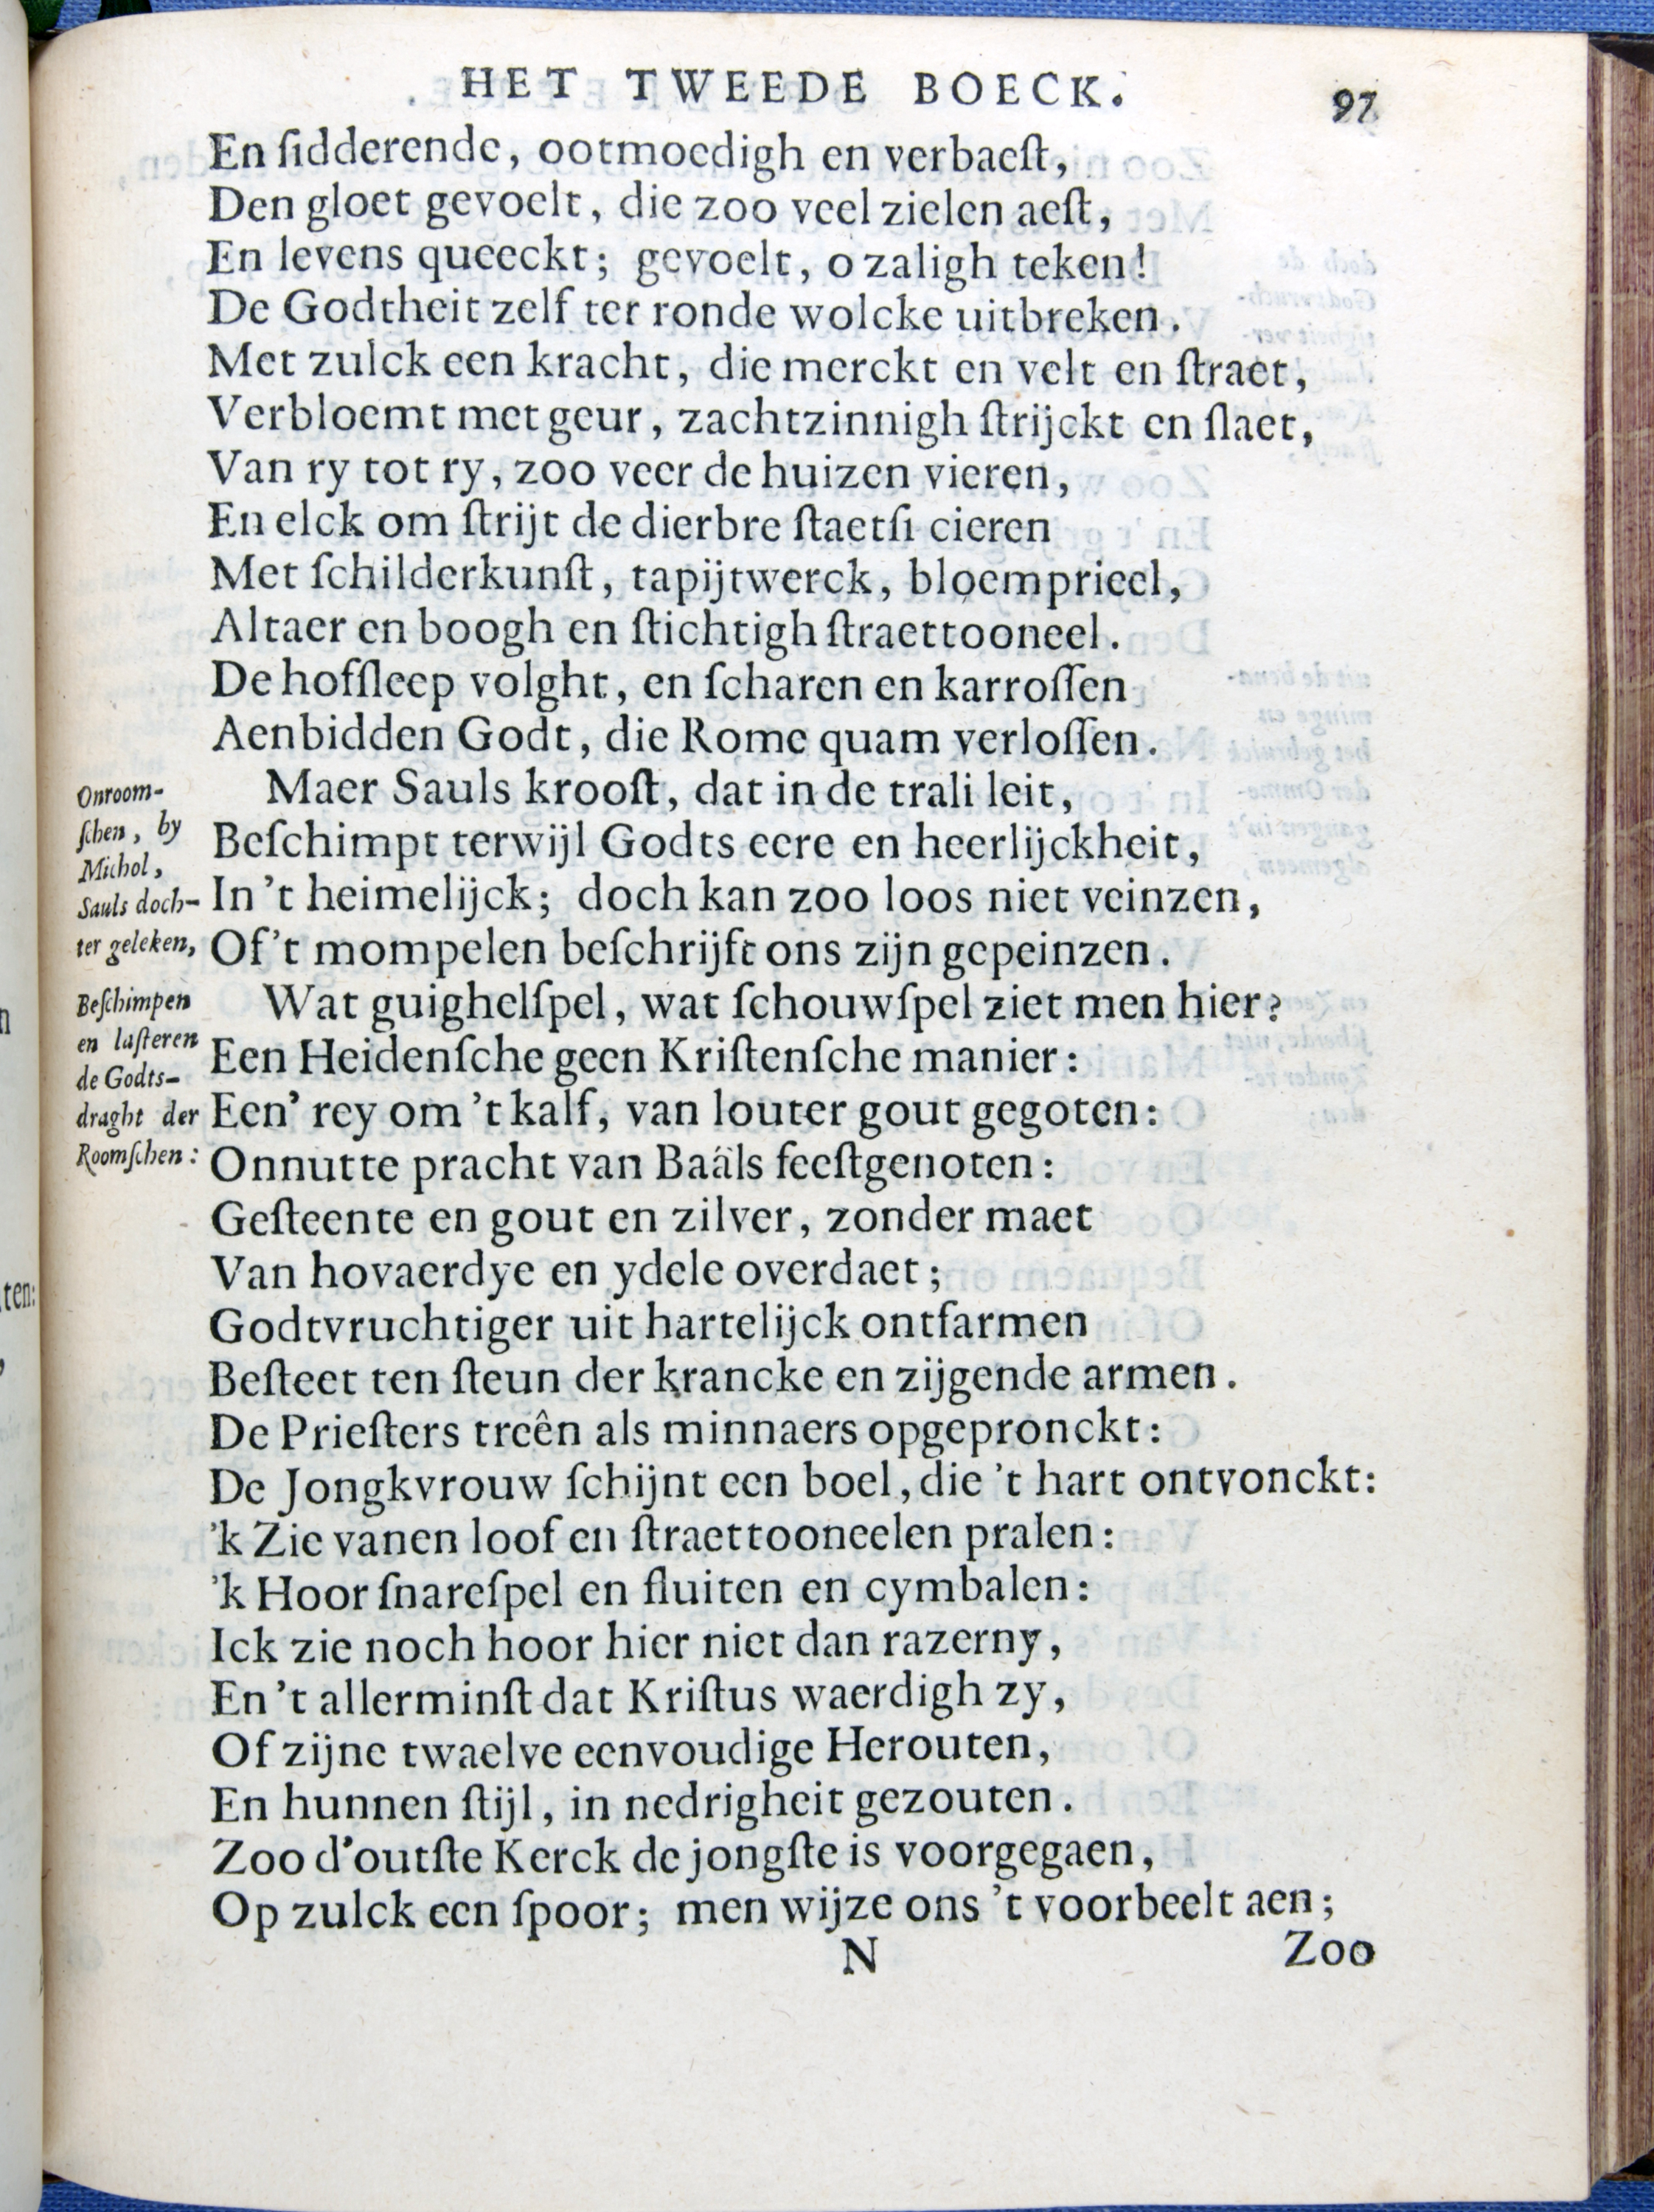 HET TWEEDE BOECK.
97
En ſidderende, ootmoedigh en verbaeſt,
Den gloet gevoelt, die zoo veel zielen aeſt,
En levens queeckt; gevoelt, o zaligh teken!
De Godtheit zelf ter ronde wolcke uitbreken.
Met zulck een kracht, die merckt en velt en ſtraet,
Verbloemt met geur, zachtzinnigh ſtrijckt en ſlaet,
Van ry tot ry, zoo veer de huizen vieren,
En elck om ſtrijt de dierbre ſtaetſi cieren
Met ſchilderkunſt, tapijtwerck, bloemprieel,
Altaer en boogh en ſtichtigh ſtraettooneel.
De hofſleep volght, en ſcharen en karroſſen
Aenbidden Godt, die Rome quam verloſſen.
Onroom-
ſchen, by
Michol,
Sauls doch-
ter geleken,
Maer Sauls krooſt, dat in de trali leit,
Beſchimpt terwijl Godts eere en heerlijckheit,
In 't heimelijck; doch kan zoo loos niet veinzen,
Of 't mompelen beſchrijft ons zijn gepeinzen.
Beſchimpen
en laſteren
de Godts-
draght der
Roomſchen:
Wat guighelſpel, wat ſchouwſpel ziet men hier?
Een Heidenſche geen Kriſtenſche manier:
Een' rey om 't kalf, van louter gout gegoten:
Onnutte pracht van Baäls feeſtgenoten:
Geſteente en gout en zilver, zonder maet
Van hovaerdye en ydele overdaet;
Godtvruchtiger uit hartelijck ontfarmen
Beſteet ten ſteun der krancke en zijgende armen.
De Prieſters treên als minnaers opgepronckt:
De Jongkvrouw ſchijnt een boel, die 't hart ontvonckt:
'k Zie vanen loof en ſtraettooneelen pralen:
'k Hoor ſnareſpel en fluiten en cymbalen:
Ick zie noch hoor hier niet dan razerny,
En 't allerminſt dat Kriſtus waerdigh zy,
Of zijne twaelve eenvoudige Herouten,
En hunnen ſtijl, in nedrigheit gezouten.
Zoo d'outſte Kerck de jongſte is voorgegaen,
Op zulck een ſpoor; men wijze ons 't voorbeelt aen;
N
Zoo